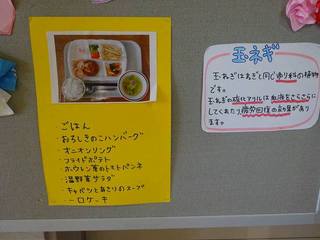 ごはん
・おろしきのこハンバーグ
・オニオンリング
・フライドポテト
・ホウレン草のトマトパンネ
・温野菜サラダ
・キャベツとあさりのスープ
・ロケーキ
玉ネギ
玉ねぎはねぎと同じゆり科の植物
です。
玉ねぎの硫化アリルは血液をさらさらに
してくれたり疲労回復の効果があり
ます。